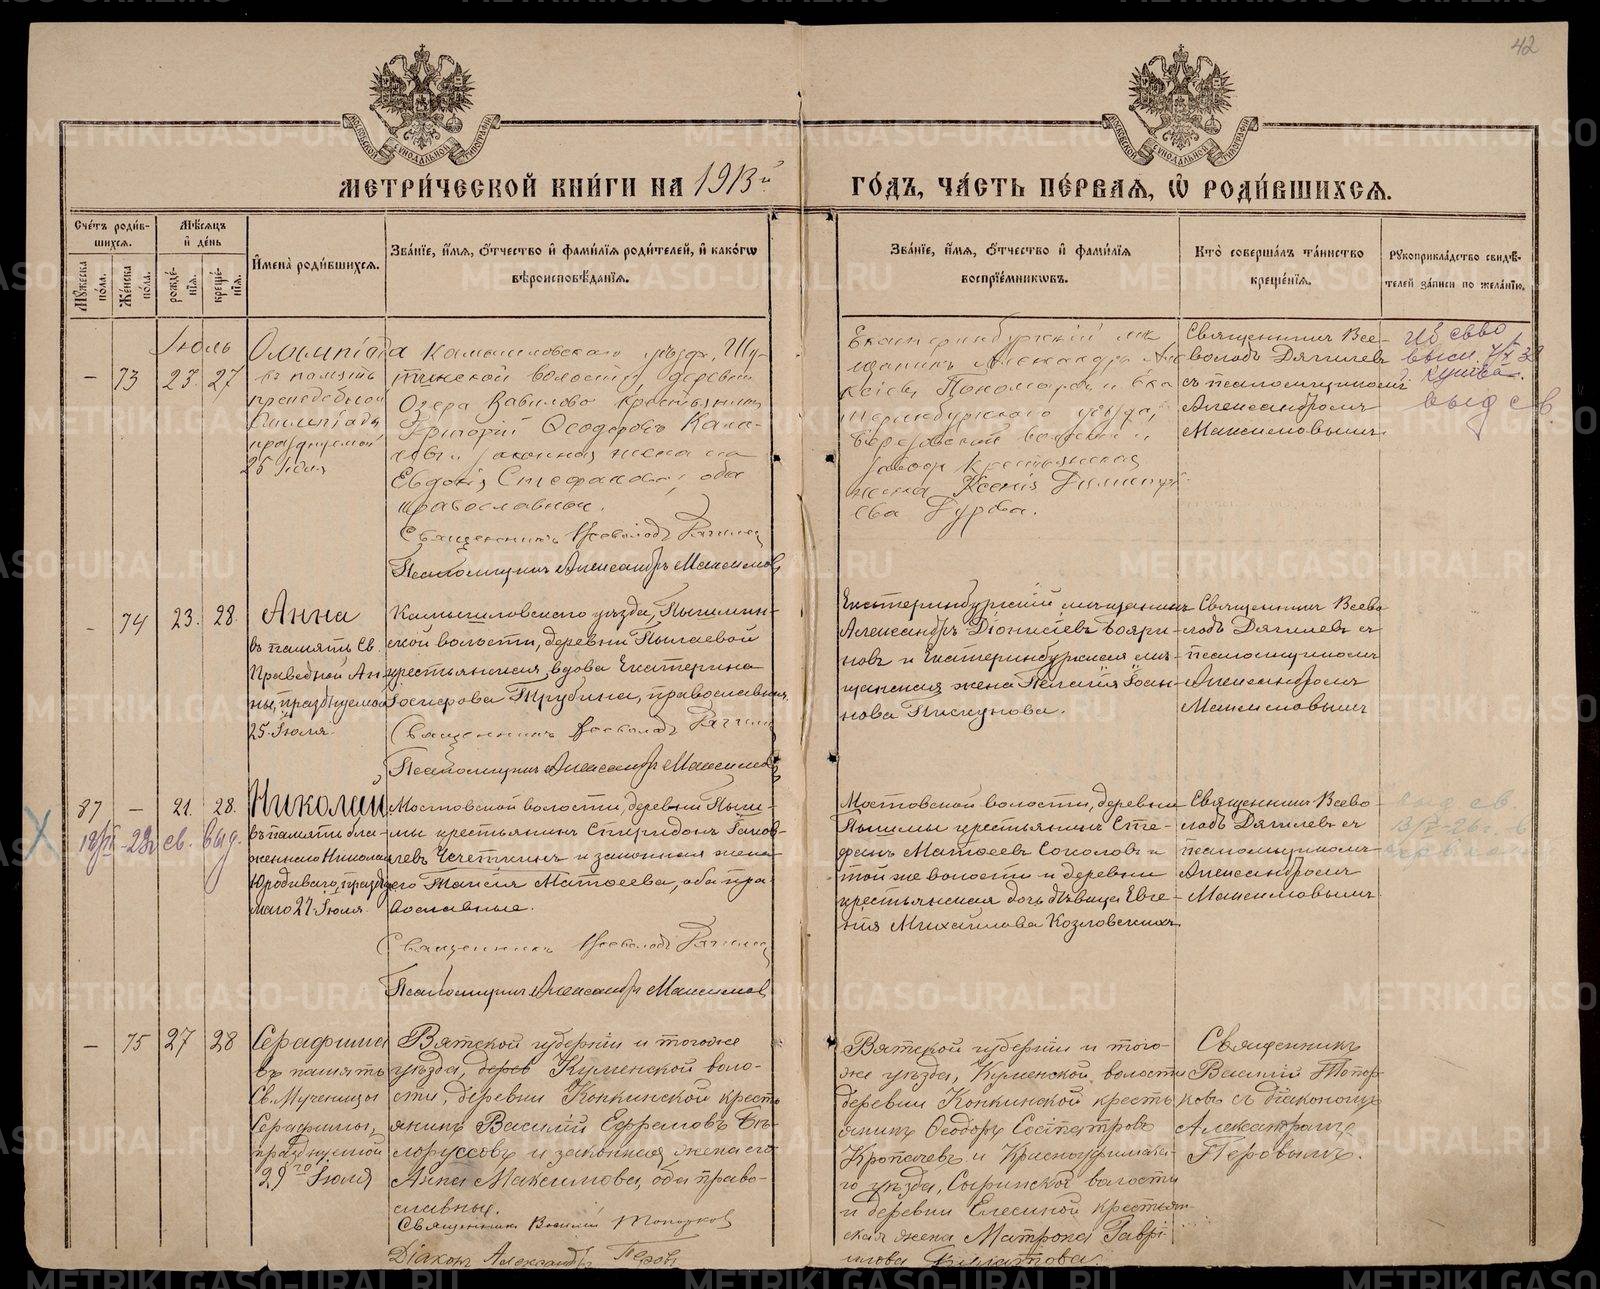 42
МОСКОВСКОЙ СѴНОДАЛЬНОЙ ТИПОГРАФІИ
МОСКОВСКОЙ СѴНОДАЛЬНОЙ ТИПОГРАФІИ
МЕТРИ́ЧЕСКОЙ КНИ́ГИ НА 1913й ГО́ДЪ, ЧА́СТЬ ПЕ́РВАЯ, Ѡ҆ РОДИ́ВШИХСЯ.
Сче́тъ роди́в-
шихся.
Му́жеска
пола.
Же́нска
пола.
Мѣ́сяцъ
и҆ де́нь
рожде́-
нїя.
креще́-
нїя.
И҆мена̀ роди́вшихся.
Зва́нїе, и҆́мя, ѻ҆́тчество и҆ фами́лїя роди́телей, и҆ како́гѡ
вѣроисповѣ́данїя.
Зва́нїе, и҆́мя, ѻ҆́тчество и҆ фами́лїя
воспрїе́мникѡвъ.
Кто̀ соверша́лъ та́инство
креще́нїя.
Рꙋкоприкла́дство свидѣ́-
телей за́писи по жела́нїю.
Іюль
— 73 23. 27
Олимпіада
въ память
преподобной
Олимпіады
празднуемой
25 Іюля
Камышловскаго уѣзда,
волости, деревни
Озера Вавилово крестьянинъ
Григорій Ѳеодоровъ
и законная жена его
Евдокія Стефанова, оба
православные.
Священникъ Всеволодъ Дягилев
Псаломщикъ Александръ Максимовъ
Екатеринбургскій мѣ-
щанинъ Александръ Але
ксѣевъ Пономаревъ и Ека
теринбургскаго уѣзда,
Березовской волости и
завода крестьянская
жена Ксенія Димитрі
ева Гурева.
Священникъ Все-
володъ Дягилевъ
съ псаломщикомъ
Александромъ
Максимовымъ.
выд св.
— 74 23. 28.
Анна
въ память Св.
Праведной Ан-
ны, празднуемой
25. Іюля.
Камышловскаго уѣзда, Пышмин-
ской волости, деревни Пылаевой
крестьянская вдова Екатерина
Іосифова Трубина, православная.
Священникъ Всеволодъ Дягилев
Псаломщикъ Александръ Максимовъ
Екатеринбургскій мѣщанинъ
Александръ Діонисіевъ Бояри-
новъ и Екатеринбургская мѣ-
щанская жена Пелагія Іоан-
нова Пискунова.
Священникъ Всево
лодъ Дягилевъ съ
псаломщикомъ
Александромъ
Максимовымъ
87 — 21. 28.
св. выд.
Николай
въ память бла-
женнаго Николая
Юродиваго, праздну
маго 27 Іюля.
Мостовской волости, деревни Пыш-
мы крестьянинъ Спиридонъ Іаков-
левъ Чечеткинъ и законная жена
его Таисія Матѳеева, оба пра-
вославные.
Священникъ Всеволодъ Дягилев
Псаломщикъ Александръ Максимовъ
Мостовской волости, деревни
Пышмы крестьянинъ Сте-
фанъ Матѳеевъ Соколовъ и
той же волости и деревни
крестьянская дочь дѣвица Евге-
нія Михайлова Козловскихъ
Священникъ Всево-
лодъ Дягилевъ съ
псаломщикомъ
Александромъ
Максимовымъ.
выд св.
— 75 27 28
Серафима
въ память
Св. Мученицы
Серафимы,
празднуемой
29го Іюля
Вятской губерніи и того же
уѣзда, дерев Куменской воло-
сти, деревни Конкинской кресть
янинъ Василій Ефремовъ Бѣ-
лоруссовъ и законная жена его
Анна Максимова, оба право-
славные.
Священникъ Василій Топорковъ
Діаконъ Александръ Перовъ
Вятской губерніи и того-
же уѣзда, Куменской волости
деревни Конкинской кресть
янинъ Ѳеодоръ Сосіпатровъ
Кропачевъ и Красноуфимска-
го уѣзда, Сыринской волости
и деревни Елесиной крестьян
ская жена Матрона Гаврі
илова Филатова.
Священникъ
Василій Топор-
ковъ съ діакономъ
Александромъ
Перовымъ.
METRIKI.GASO-URAL.RU